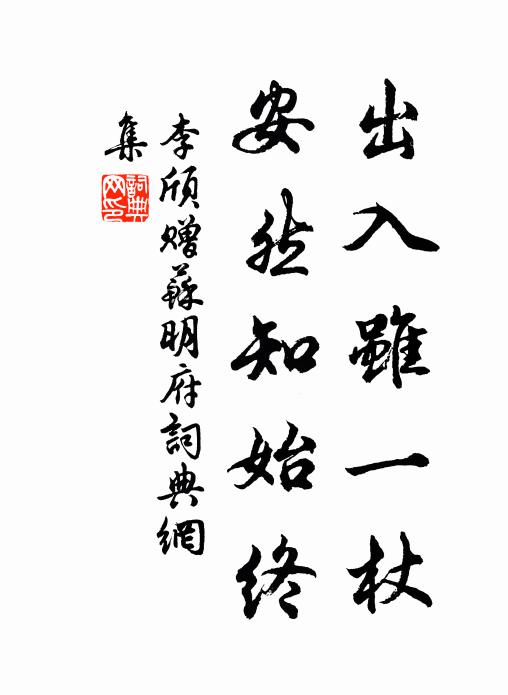 出入雖一杖
安然知始終
李頎贈蘇明府詞典網
集
詞典
网印